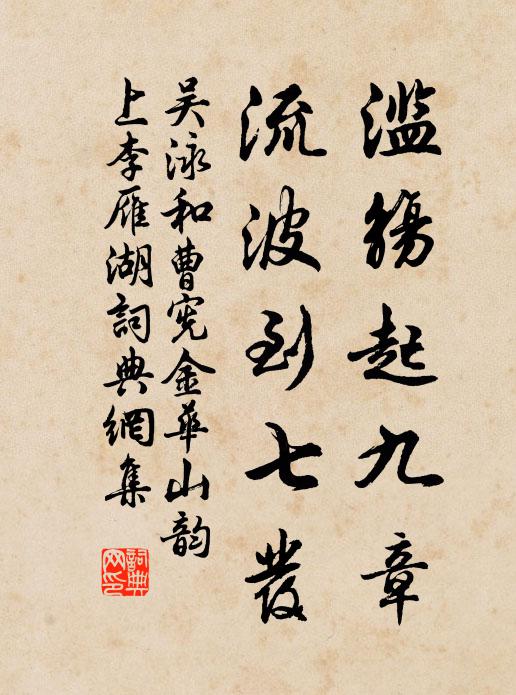 濫觴起九章
流波到七發
吴泳和曹宪金華山韵
上李雁湖詞典網集
詞典网印